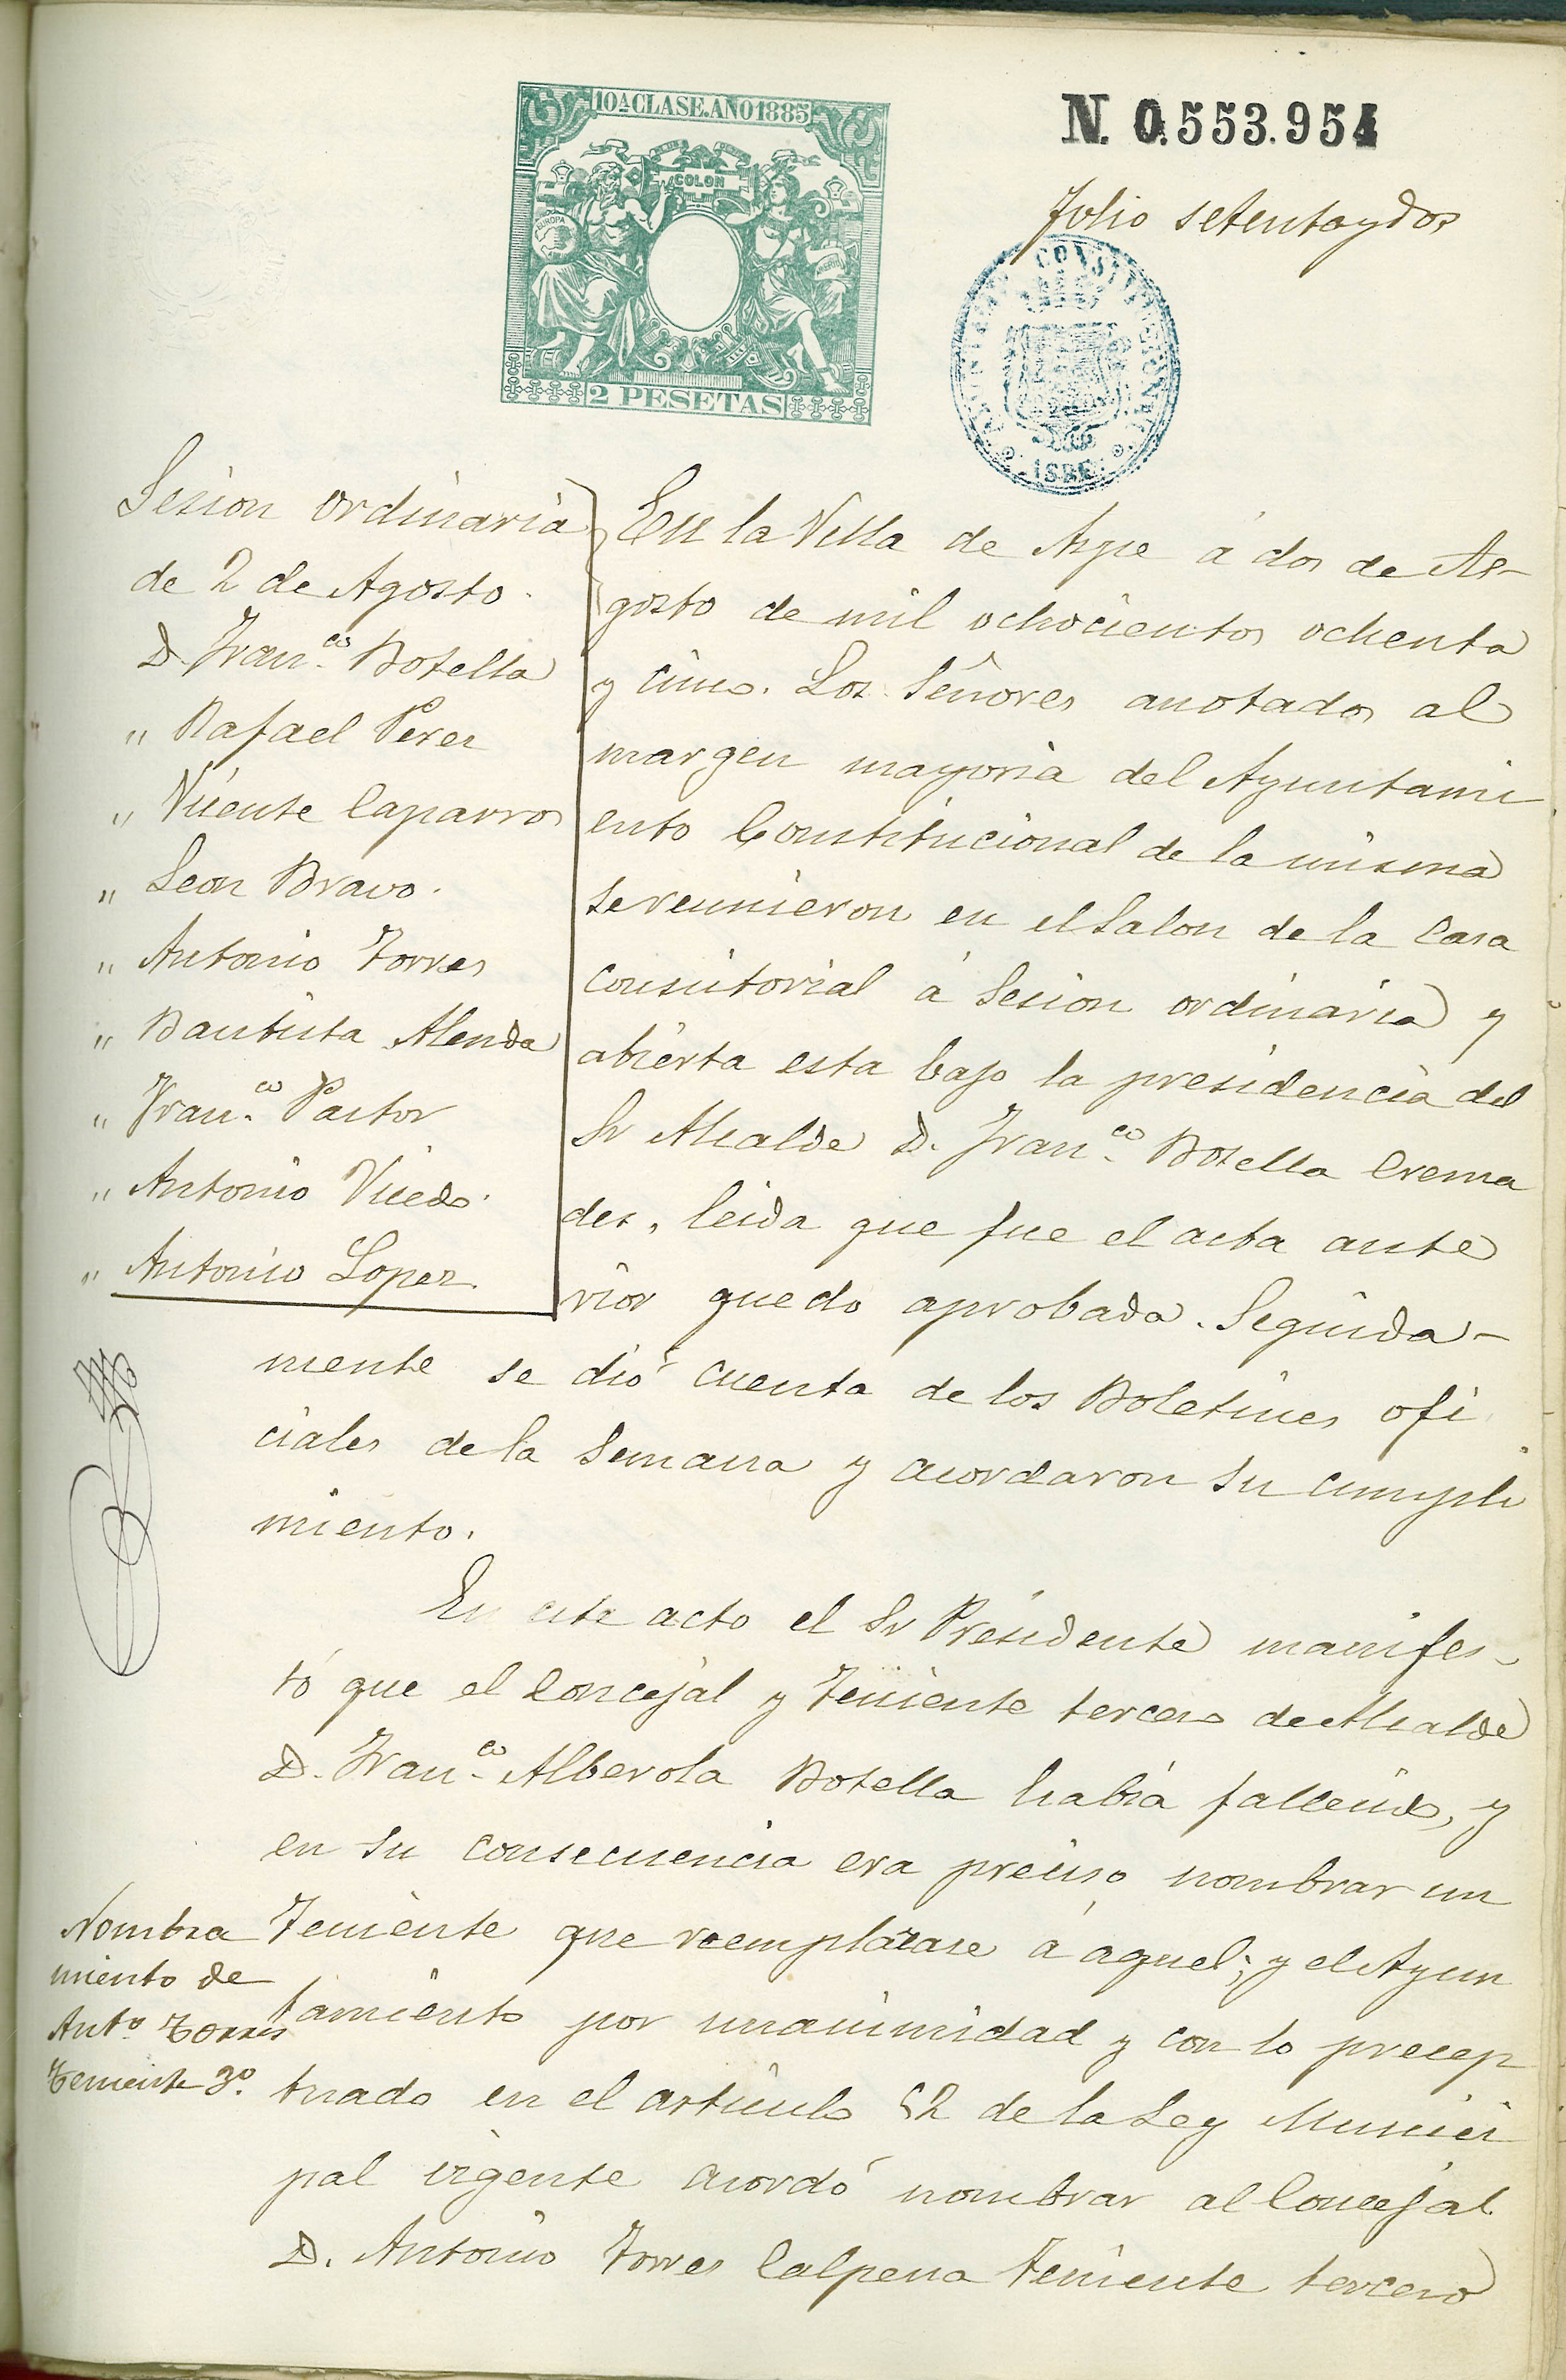 10ª CLASE. AÑO 1885
COLON
EUROPA
2 PESETAS
N. 0.553.954
Folio setenta y dos
Sesion ordinaria
de 2 de Agosto.
D. Fran.co Botella
" Rafael Perez
" Vicente Caparros
" Leon Bravo.
" Antonio Torres
" Bautista Alenda
" Fran.co Pastor
" Antonio Vicedo.
" Antonio Lopez.
En la Villa de Aspe á dos de A-
gosto de mil ochocientos ochenta
y cinco. Los Señores anotados al
margen mayoria del Ayuntami
ento Constitucional de la misma
se reunieron en el Salon de la Casa
Consistorial á Sesion ordinaria y
abierta esta bajo la presidencia del
Sr Alcalde D. Fran.co Botella Crema
des, leida que fue el acta ante
rior quedo aprobada. Seguida-
mente se dió cuenta de los Boletines ofi
ciales de la Semana y acordaron su cumpli
miento.
En este acto el Sr Presidente manifes-
tó que el Concejal y Teniente tercero de Alcalde
D. Fran.co Alberola Botella habia fallecido, y
en su consecuencia era preciso nombrar un
Teniente que reemplazase á aquel; y el Ayun
tamiento por unanimidad y con lo precep
tuado en el articulo 52 de la Ley Munici
pal vigente acordó nombrar al Concejal
D. Antonio Torres Calpena Teniente tercero
Nombra
miento de
Ant.o Torres
Teniente 3º.